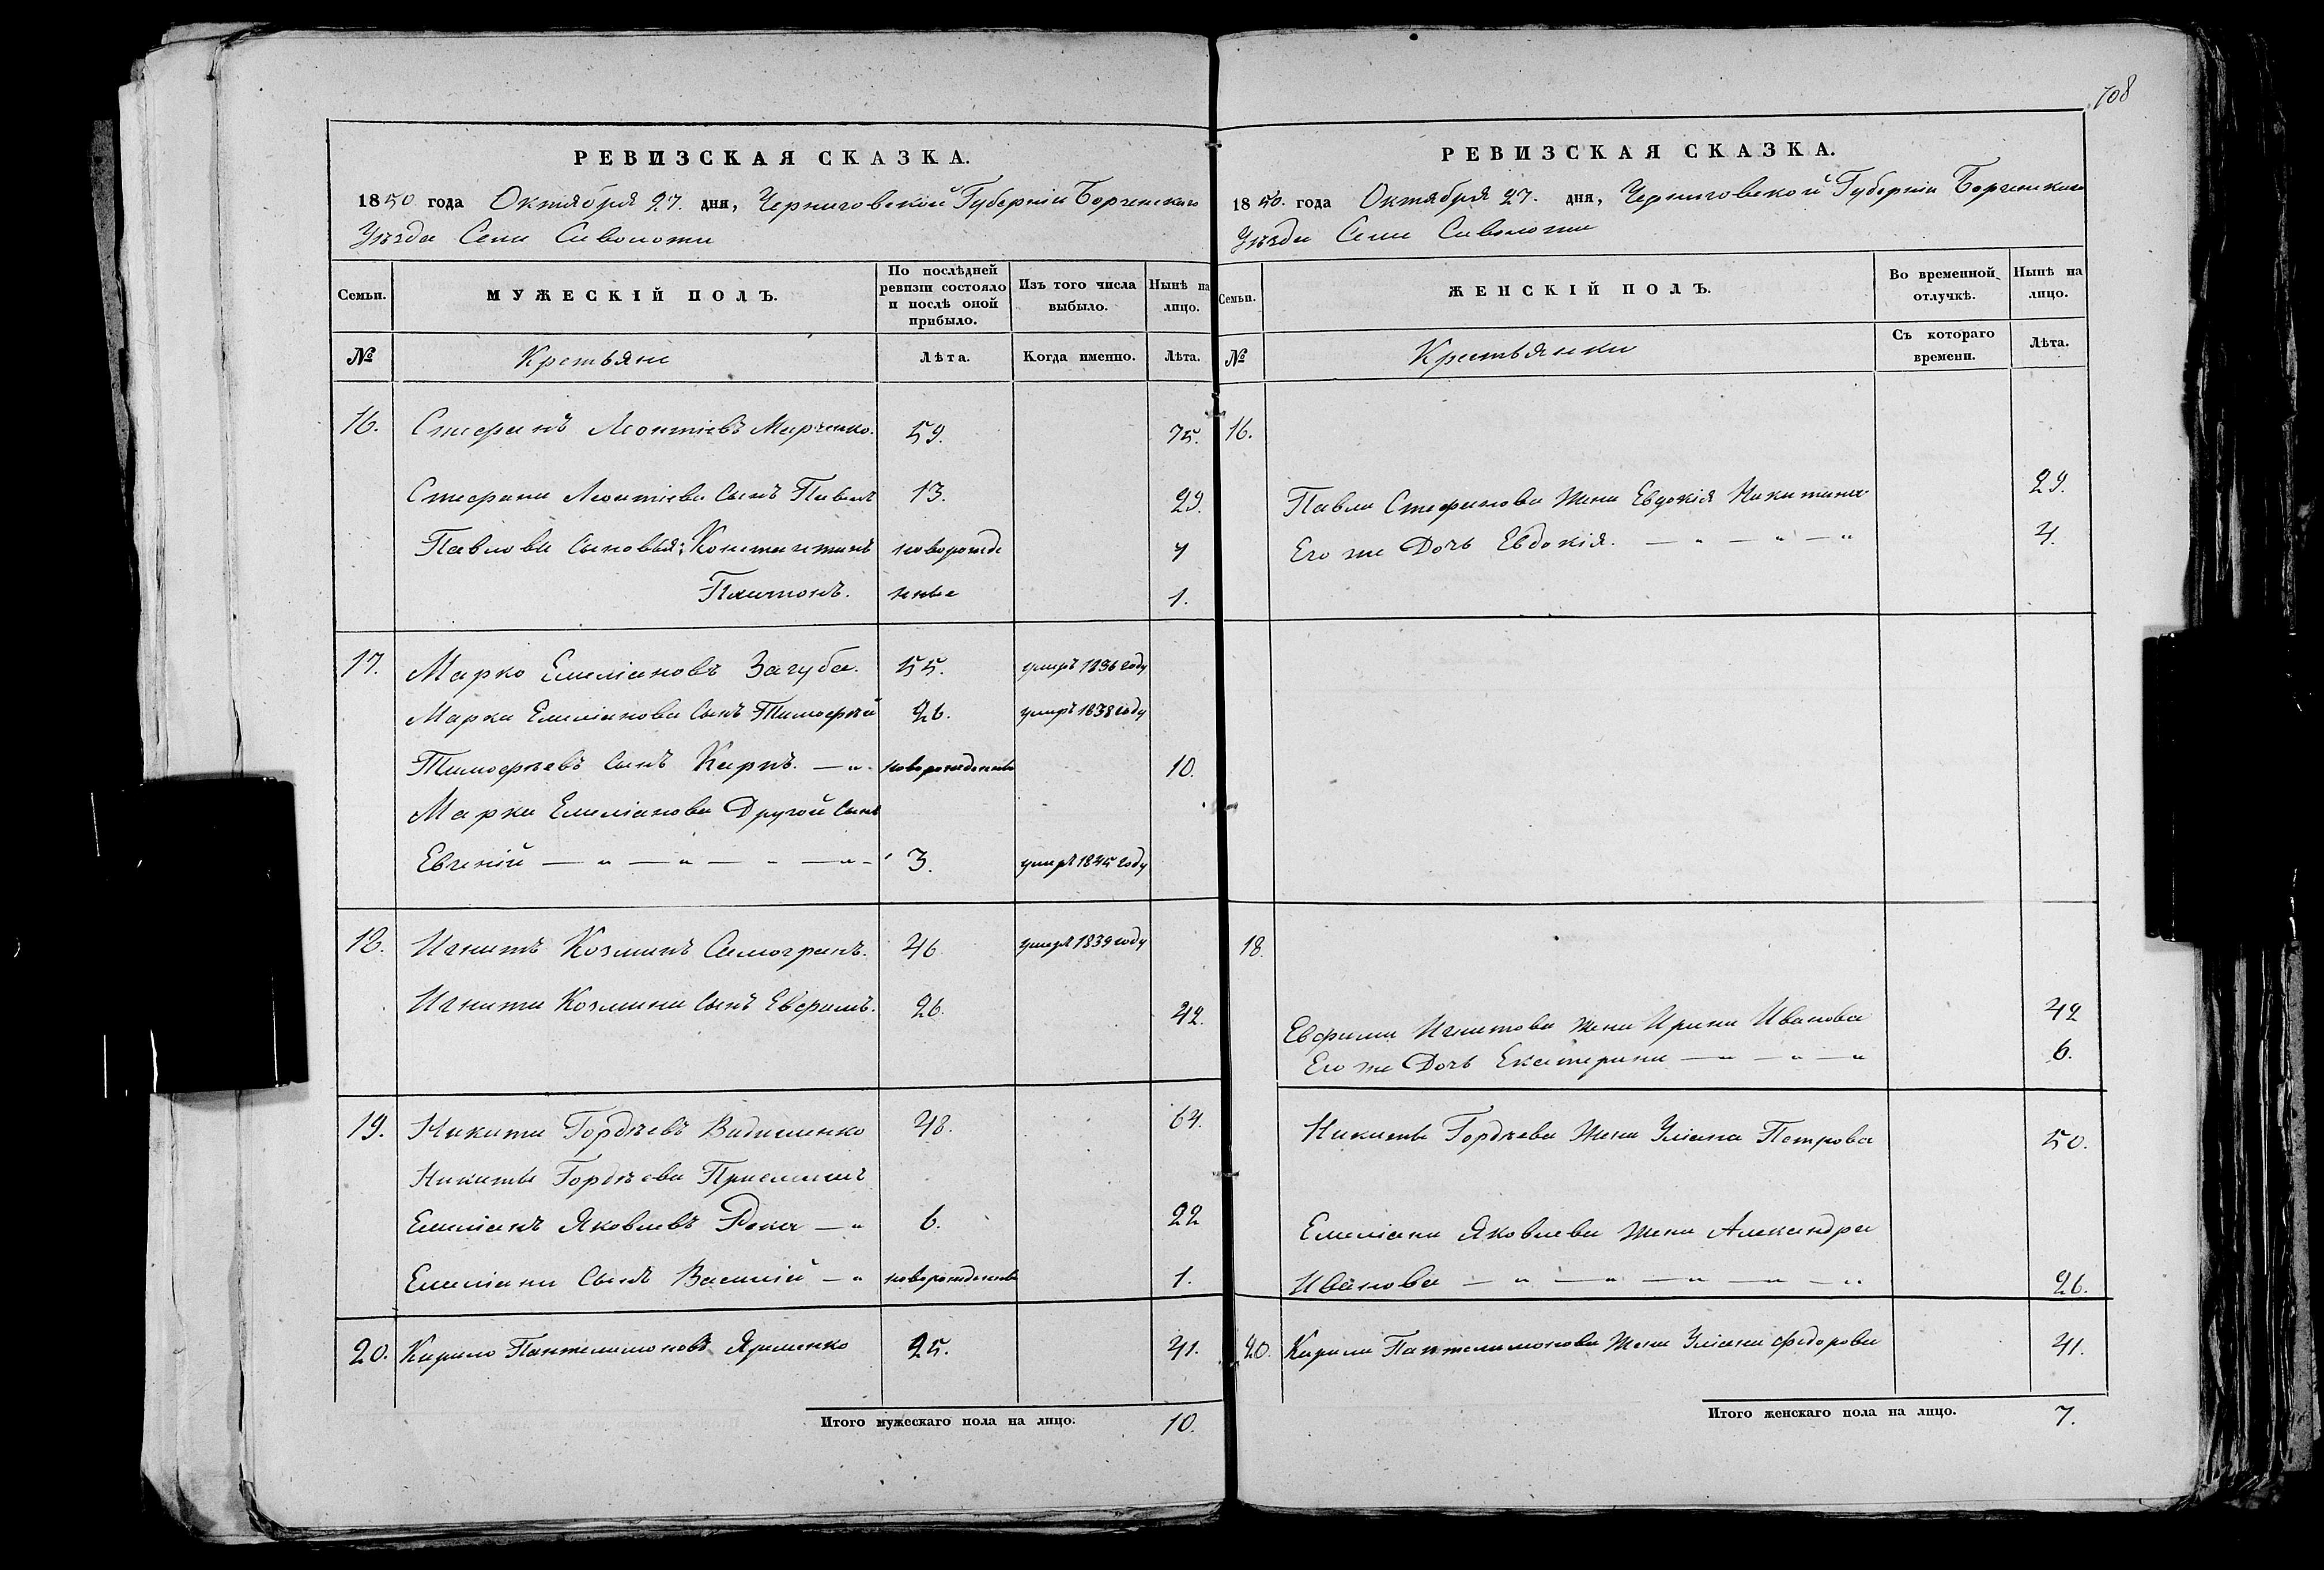 708
РЕВИЗСКАЯ СКАЗКА.
1850 года Октября 27. дня, Черниговской Губерніи Борзенскаго
Уѣзда Села Сиволожи
Семьи.
МУЖЕСКІЙ ПОЛЪ.
По послѣдней ревизіи состояло и послѣ оной прибыло.
Изъ того числа выбыло.
Нынѣ на лицо.
№
Крестьяне
Лѣта.
Когда именно.
Лѣта.
16. Стефанъ Леонтіевъ Марченко. 59. 75.
Стефана Леонтіева Сынъ Павелъ 13. 29.
Павлова Сыновья: Константинъ новорожде 4
Платонъ. нные 1.
17. Марко Емеліановъ Загуба. 55. умеръ 1836 году
Марка Емеліанова Сынъ Тимофѣй 26. умеръ 1838 году
Тимофѣевъ Сынъ Карпъ. — „ новорожденный 10.
Марка Емеліанова Другой Сынъ
Евгеній — „ — „ — „ — „ — 3. умеръ 1845 году
18. Игнатъ Козминъ 46 умеръ 1839 году
Игната Козмина Сынъ Евфимъ. 26. 42.
19. Никита Гордѣевъ 48. 64.
Никиты Гордѣева Приемышъ
Емеліанъ Яковлевъ — „ 6. 22
Емеліана Сынъ Василій — „ новорожденный 1.
20. Кирило Пантелимоновъ Яременко 25. 41.
Итого мужескаго пола на лицо. 10.
РЕВИЗСКАЯ СКАЗКА.
1850. года Октября 27. дня, Черниговской Губерніи Борзенскаго
Уѣзда Села Сиволожи
Семьи.
ЖЕНСКІЙ ПОЛЪ.
Во временной отлучкѣ.
Нынѣ на лицо.
№
Крестьянки
Съ котораго времени.
Лѣта.
16.
Павла Стефанова жена Евдокія Никитина 29.
Его же Дочь Евдокія. — „ — „ — „ 4.
18.
Евфима Игнатова жена Ирина Иванова 42
Его же Дочь Екатерина — „ — „ — „ 6.
Никиты Гордѣева жена Уліана Петрова 50.
Емеліана Яковлева жена Александра
Иванова — „ — „ — „ — „ — „ 26.
20. Кирила Пантелимонова жена Уліана Федорова 41.
Итого женскаго пола на лицо. 7.